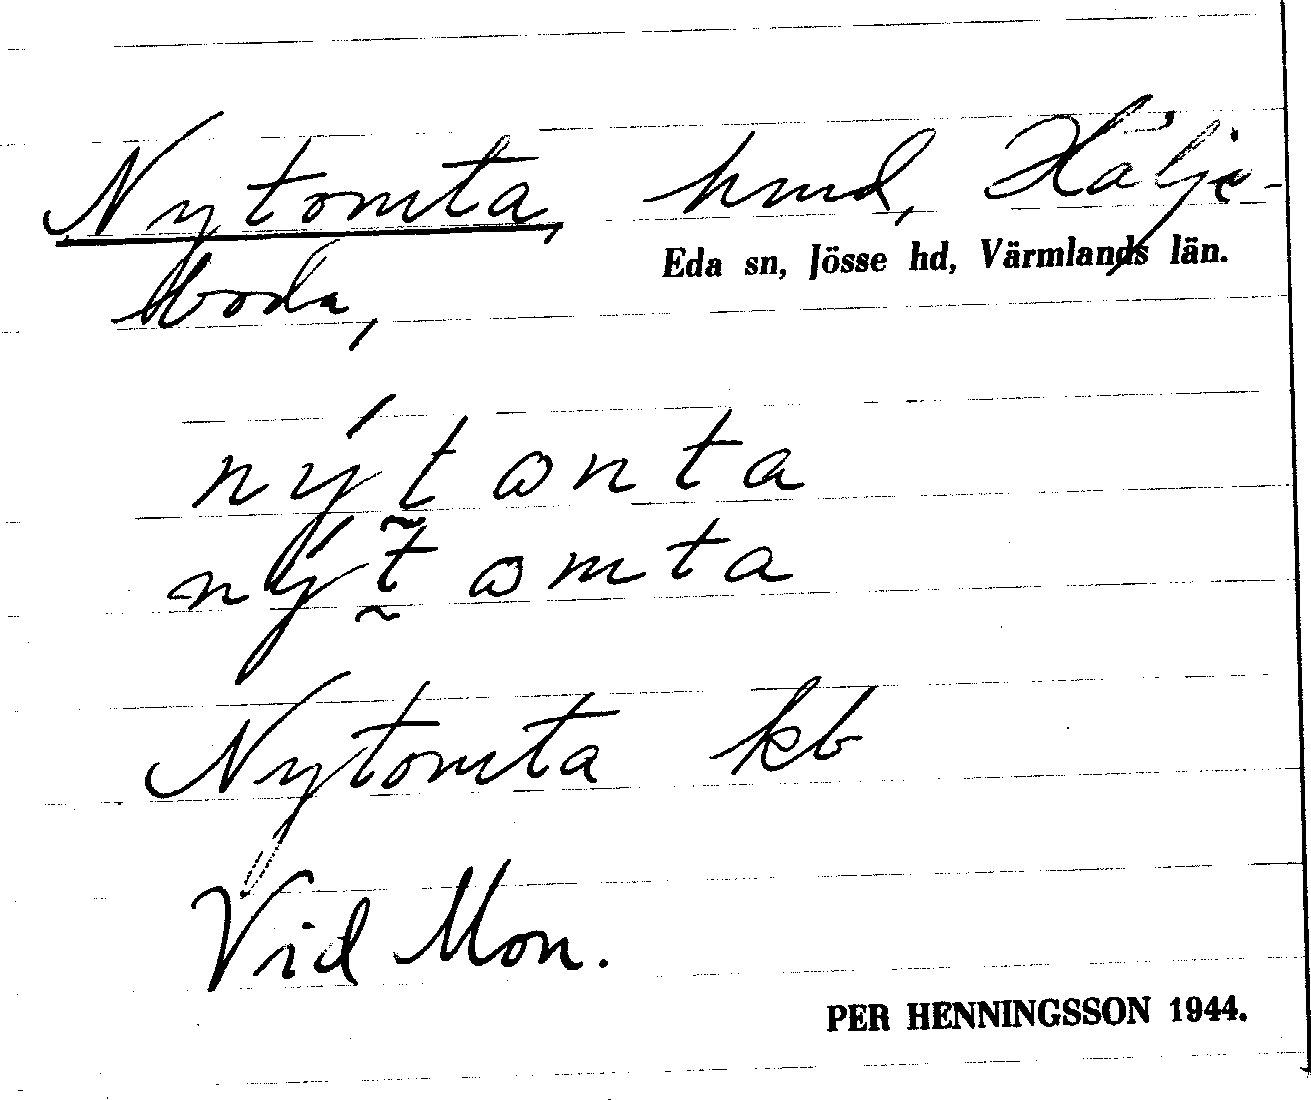 Nytomta, hmd, Hälje-
Eda sn, Jösse hd, Värmlands län.
boda,
nýt̰ɷnta
nýt̰ɷmta
Nytomta kb
Vid Mon.
PER HENNINGSSON 1944.